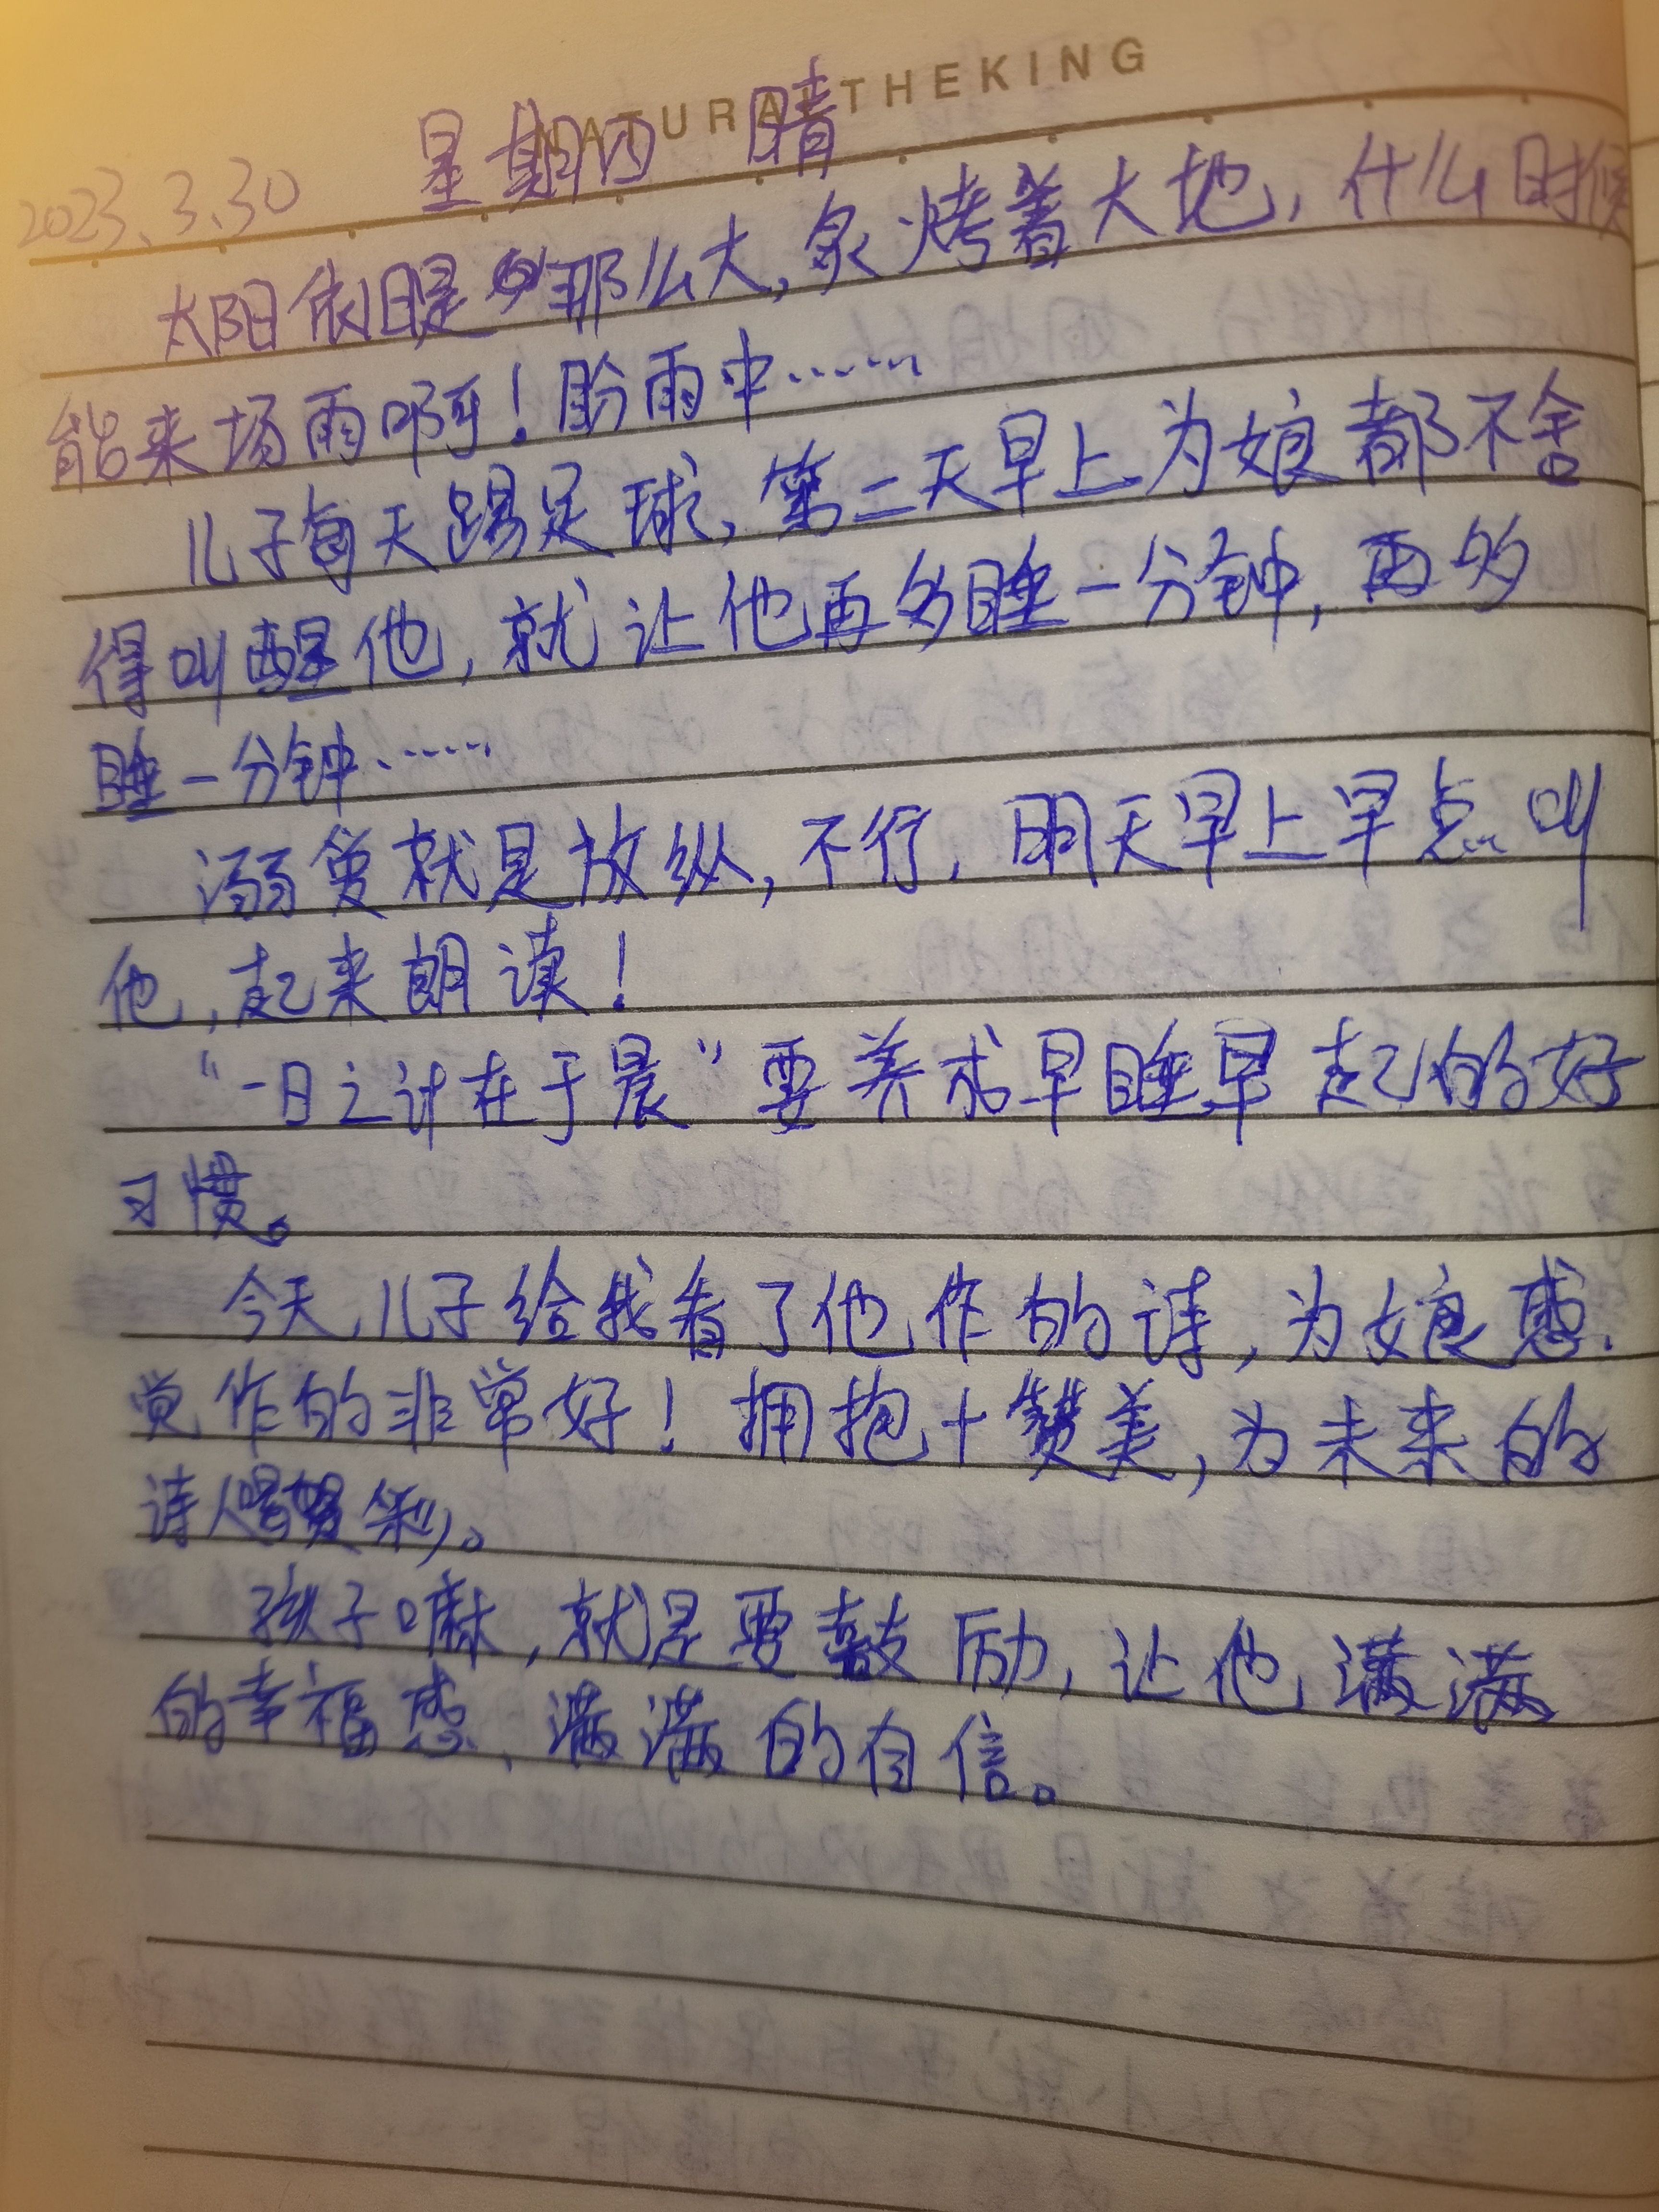 NATURAL THEKING
2023.3.30 星期四 晴
太阳依旧是那么大,炙烤着大地,什么时候
能来场雨啊!盼雨中……
儿子每天踢足球,第二天早上为娘都不舍
得叫醒他,就让他再多睡一分钟,再多
睡一分钟……
溺爱就是放纵,不行,明天早上早点叫
他,起来朗读!
“一日之计在于晨”要养成早睡早起的好
习惯。
今天,儿子给我看了他作的诗,为娘感
觉作的非常好!拥抱+赞美,为未来的
诗人喝彩。
孩子嘛,就是要鼓励,让他满满
的幸福感,满满的自信。